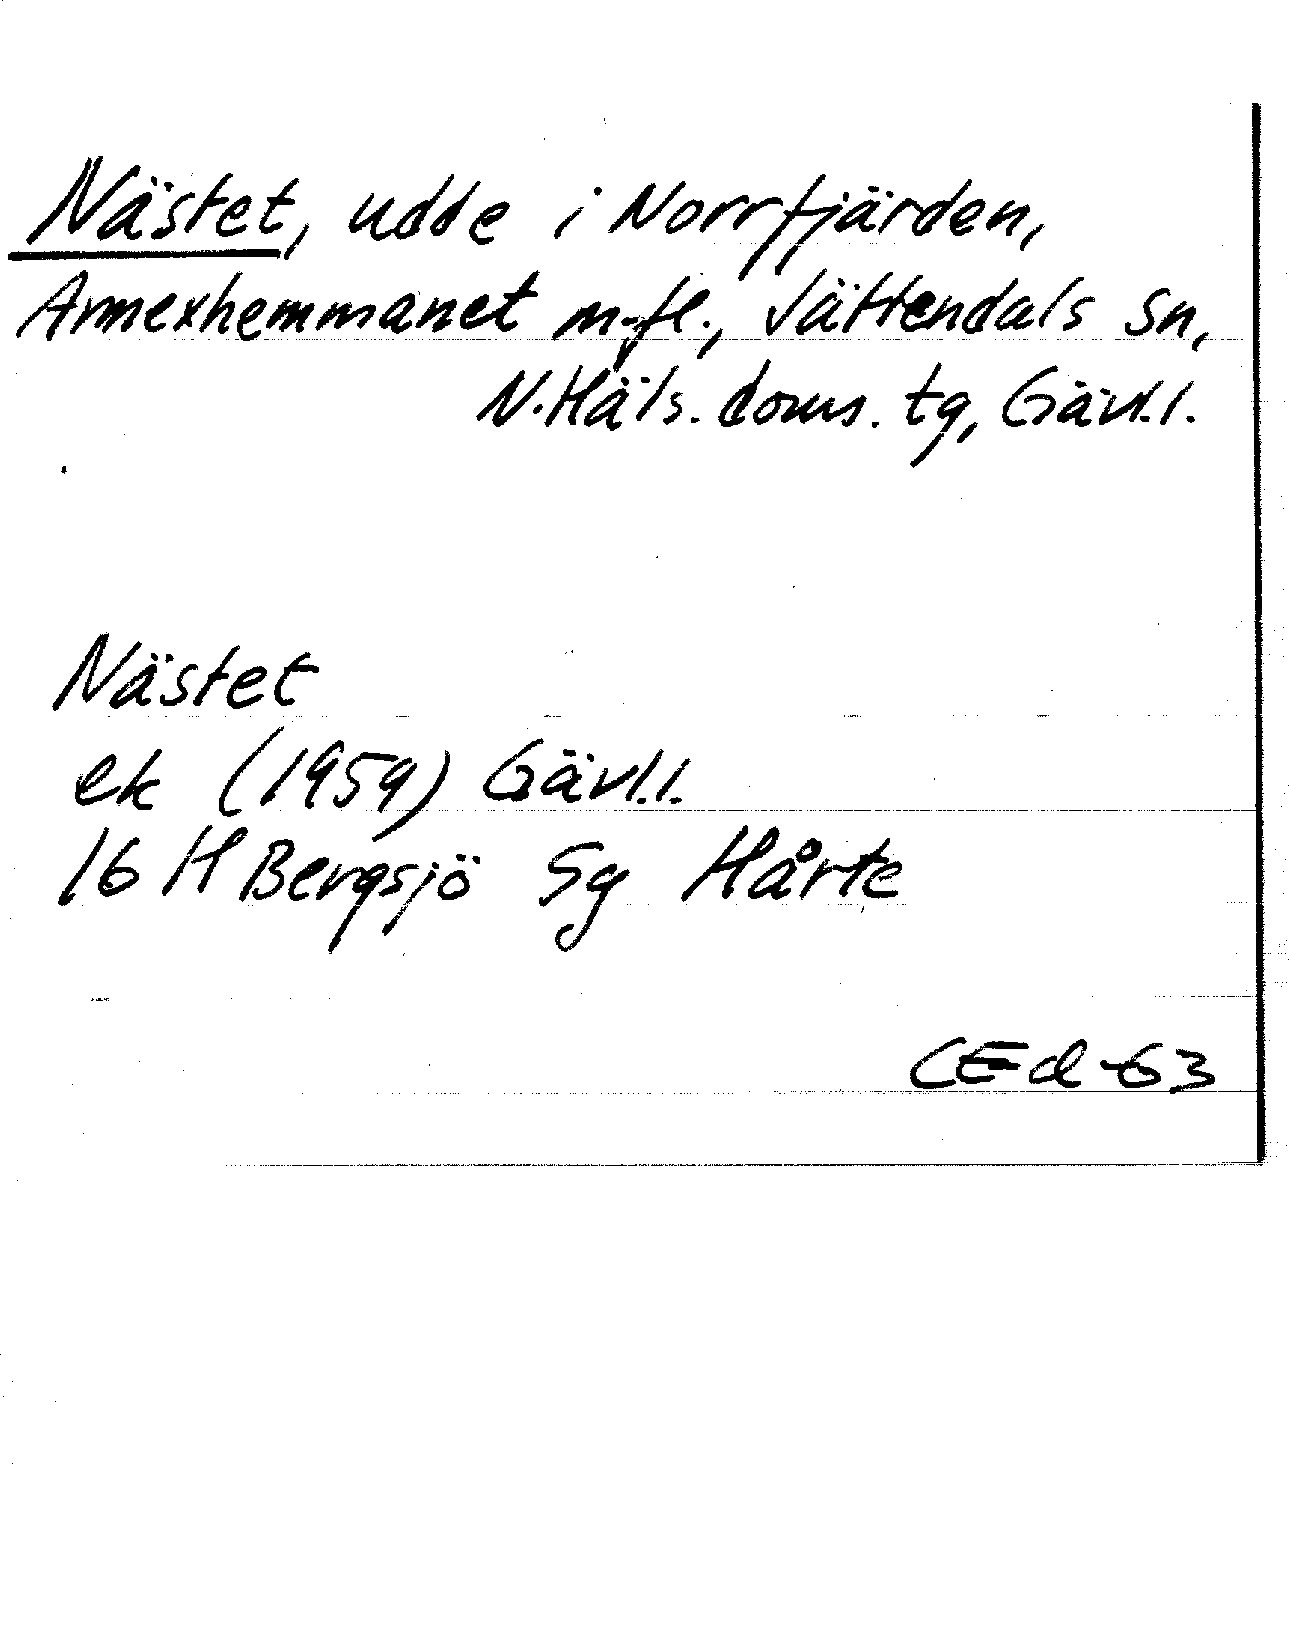 Nästet, udde i Norrfjärden,
Annexhemmanet m.fl., Jättendals sn,
N.Häls. doms. tg, Gävl.l.
Nästet
ek (1959) Gävl.l.
16 H Bergsjö 5g Hårte
CEd -63